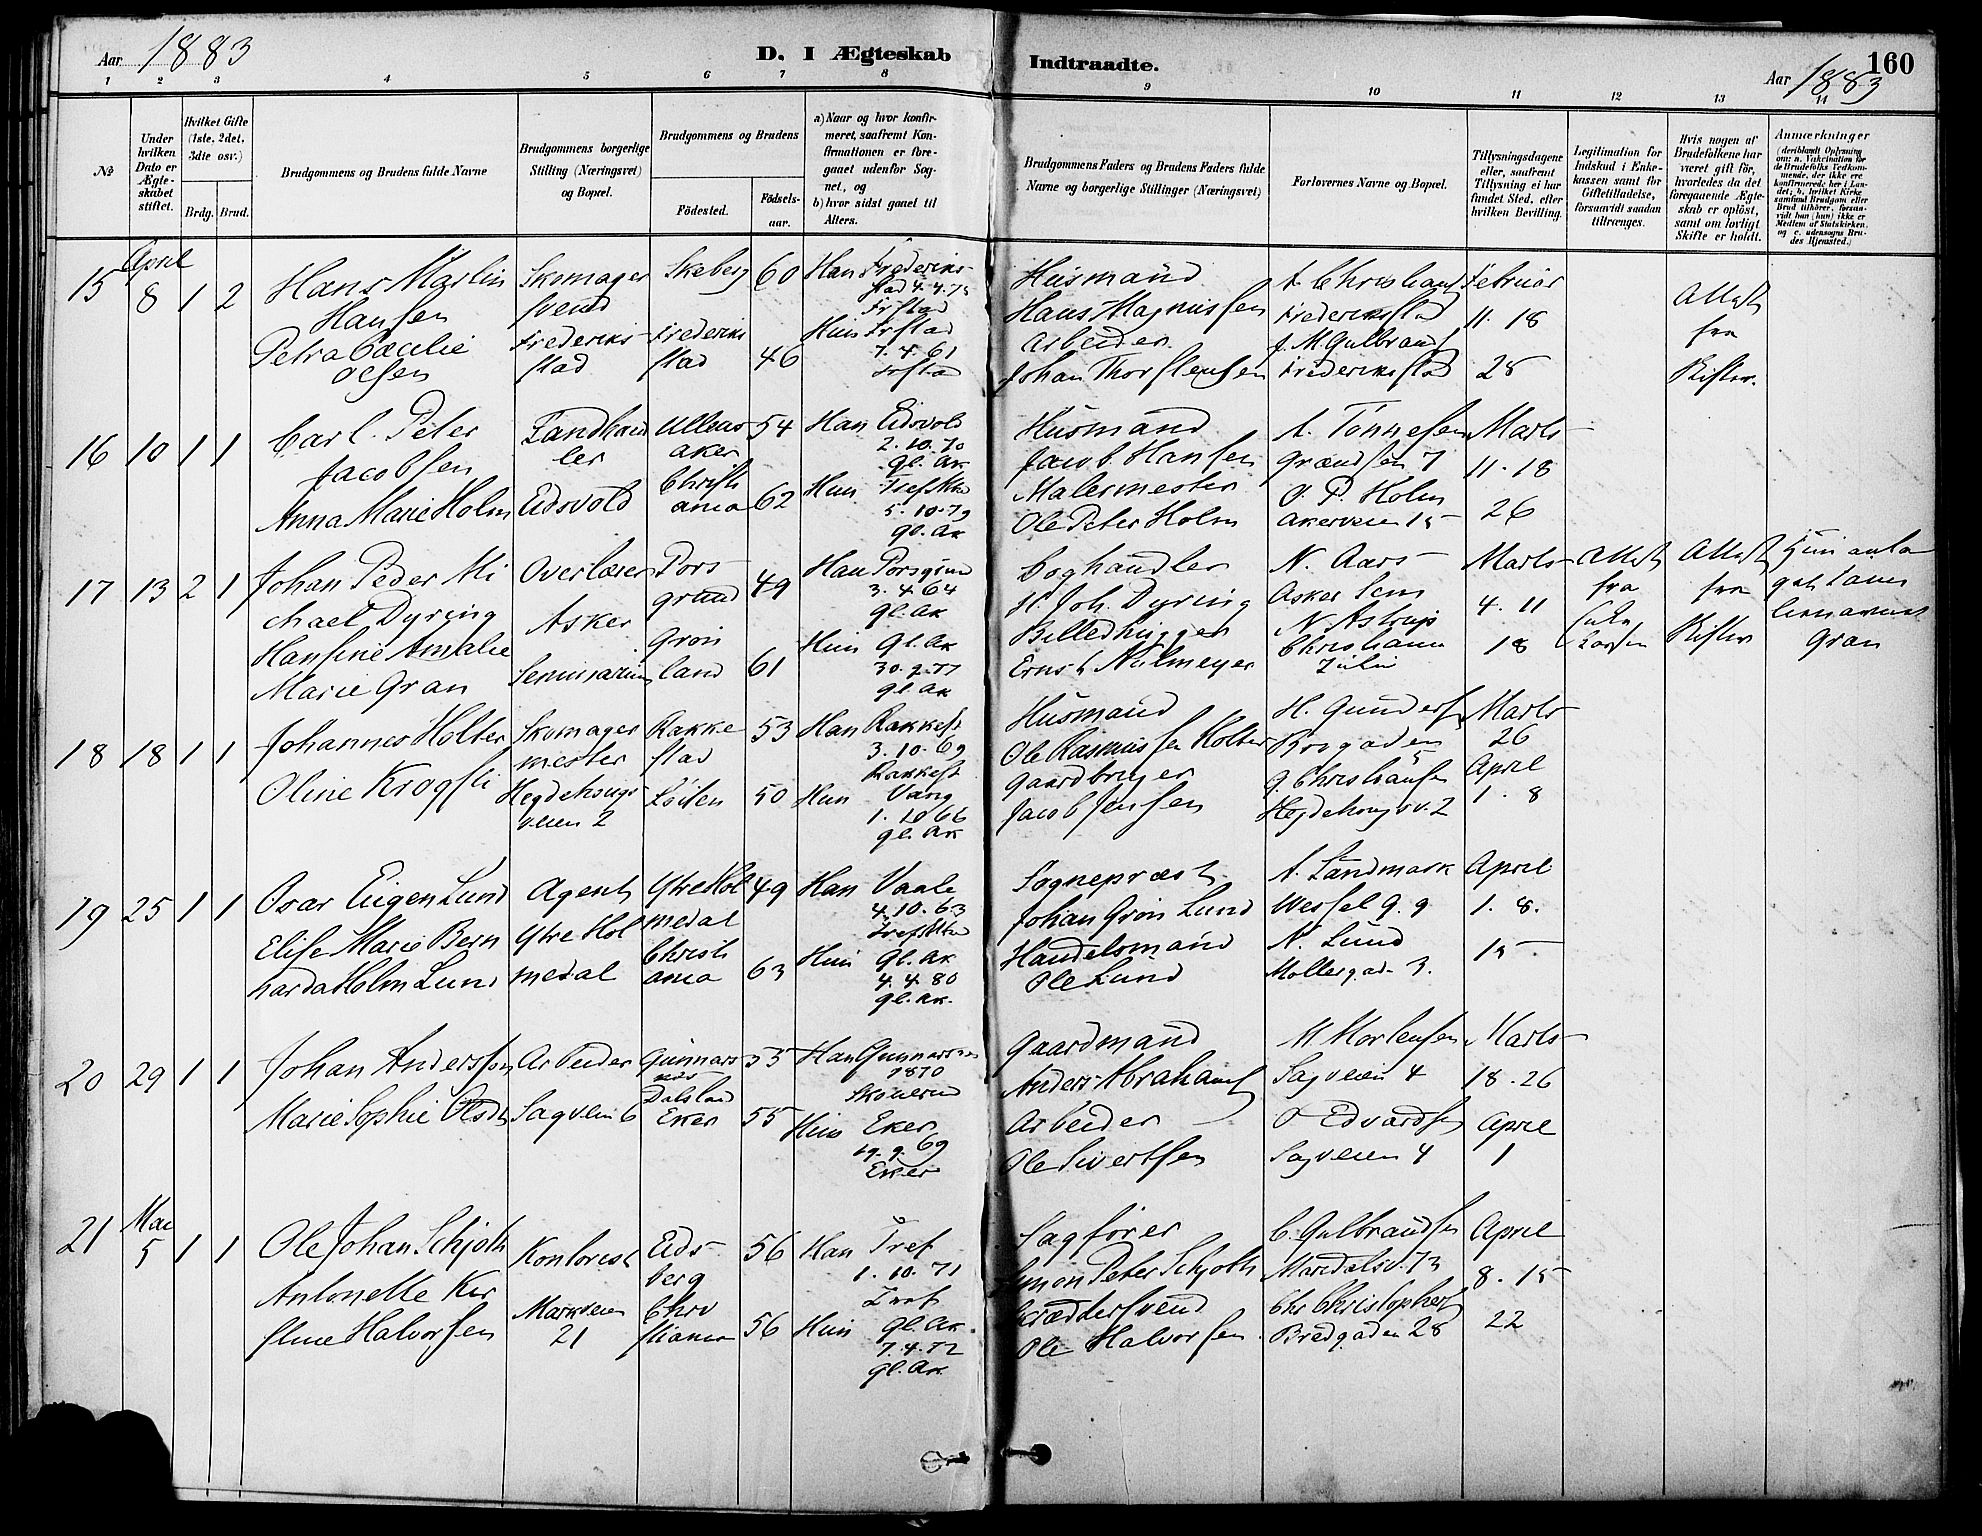 Aar 1883
D. I Ægteskab
Indtraadte.
Aar 1883
160
1 2 3 4 5 6 7 8 9 10 11 12 13 14
No
Under hvilken Dato er Ægteskabet stiftet.
Hvilket Gifte (1ste, 2det, 3dte osv.)
Brdg. Brud.
Brudgommens og Brudens fulde Navne
Brudgommens borgerlige Stilling (Næringsvei) og Bopæl.
Brudgommens og Brudens
Födested.
Födselsaar.
a) Naar og hvor konfirmeret, saafremt Konfirmationen er foregaaet udenfor Sognet, og
b) hvor sidst gaaet til Alters.
Brudgommens Faders og Brudens Faders fulde Navne og borgerlige Stillinger (Næringsvei)
Forlovernes Navne og Bopæl.
Tillysningsdagene eller, saafremt Tillysning ei har fundet Sted, efter hvilken Bevilling.
Legitimation for Indskud i Enkekassen samt for Giftetilladelse, forsaavidt saadan tiltrænges.
Hvis nogen af Brudefolkene har været gift för, hvorledes da det foregaaende Ægteskab er oplöst, samt om lovligt Skifte er holdt.
Anmærkninger
15 April 8 1 2
Hans Martin
Hansen
Petra Cæcilie
Olsen
Skomager
svend
Frederiks-
stad
Skeberg 60
Frederiks
stad 46
Han Frederiks-
stad 4.4.75
Frstad
Hun Frstad
7.4.61
Frstad
Husmand
Hans Magnussen
Arbeider
Johan Thorstensen
A. Christians
Frederikstad
J. M. Gulbrans
Frederikstad
Februar
11. 18
25
Attest
fra
Skifter.
16 10 1 1
Carl Peter
Jacobsen
Anna Marie Holm
Landhand
ler
Eidsvold
Ullens
aker 54
Christi
ania 62
Han Eidsvold
2.10.70
gl. Ak
Hun Trefkke
5.10.79
gl. Ak
Husmand
Jacob Hansen
Malermester
Ole Peter Holm
A. Tønnesen
Grændsen 7
O. P. Holm
Akerveien 15
Marts
11. 18
26
17 13 2 1
Johan Peder Mi
chael Dyring
Hansine Amalie
Marie Gran
Overlærer
Asker
Seminarium
Pors-
grund 49
Grön
land 61
Han Porsgrund
3.4.64
gl. Ak
Hun gl. Ak
30.9.77
gl. Ak
Boghandler
H. Joh. Dyring
Billedhugger
N. Aars
Asker Sem
N. Astrup
Christiania
Marts
4. 11
18
Attest
fra
Attest
fra
Skifter
Hun anta
Gran
18 18 1 1
Johannes Holter
Oline Krogsti
Skomager
mester
Hegdehougs
veien 2
Rakke
stad 53
Löiten 50
Han Rakkest
3.10.69
Rakkest
Hun Vang
1.10.66
gl. Ak
Husmand
Ole Rasmussen Holter
Gaardbruger
Jacob Jensen
H. Gunders
Brogaden 5
G. Christiansen
Hegdehougsv. 2
Marts
26
April
1. 8
19 25 1 1
Osar Eugen Lund
Elise Marie Bern
harda Holm Lund
Agent
Ytre Hol
medal
Ytre Hol 49
medal
Christi
ania 63
Han Vaale
4.10.63
Trefkke
Hun gl. Ak
4.4.80
gl. Ak.
Sognepræst
Johan Grön Lund
Handelsmand
Ole Lund
A. Landmark
Wessel g. 9
N. Lund
Møllergad. 3.
April
1. 8.
15
20 29 1 1
Johan Anderssøn
Marie Sophie Olsdt
Arbeider
Sagveien 6
Gunnars 55
nes
Dalsland
Eker 55
Han Gunnarsnes
1870
Skönerud
Hun Eker
19.9.69
Eker
Gaardmand
Anders Abrahams
Arbeider
Ole Sivertsen
M Mortensen
Sagveien 4
O Edvardsen
Sagveien 4
Marts
18. 26
April
1
21 Mai 5 1 1
Ole Johan Schjöth
Antonette Kir
stine Halvorsen
Kontorist
Markveien
21
Eids-
berg 56
Chri
stiania 56
Han Tref
1.10.71
Tref
Hun gl. Ak.
7.4.72
gl. Ak
Sagförer
Simon Peter Schjöth
Skræddersvend
Ole Halvorsen
C. Gulbrandsen
Maridalsv. 73
Chr Christophers
Bredgaden 28
April
8. 15
22